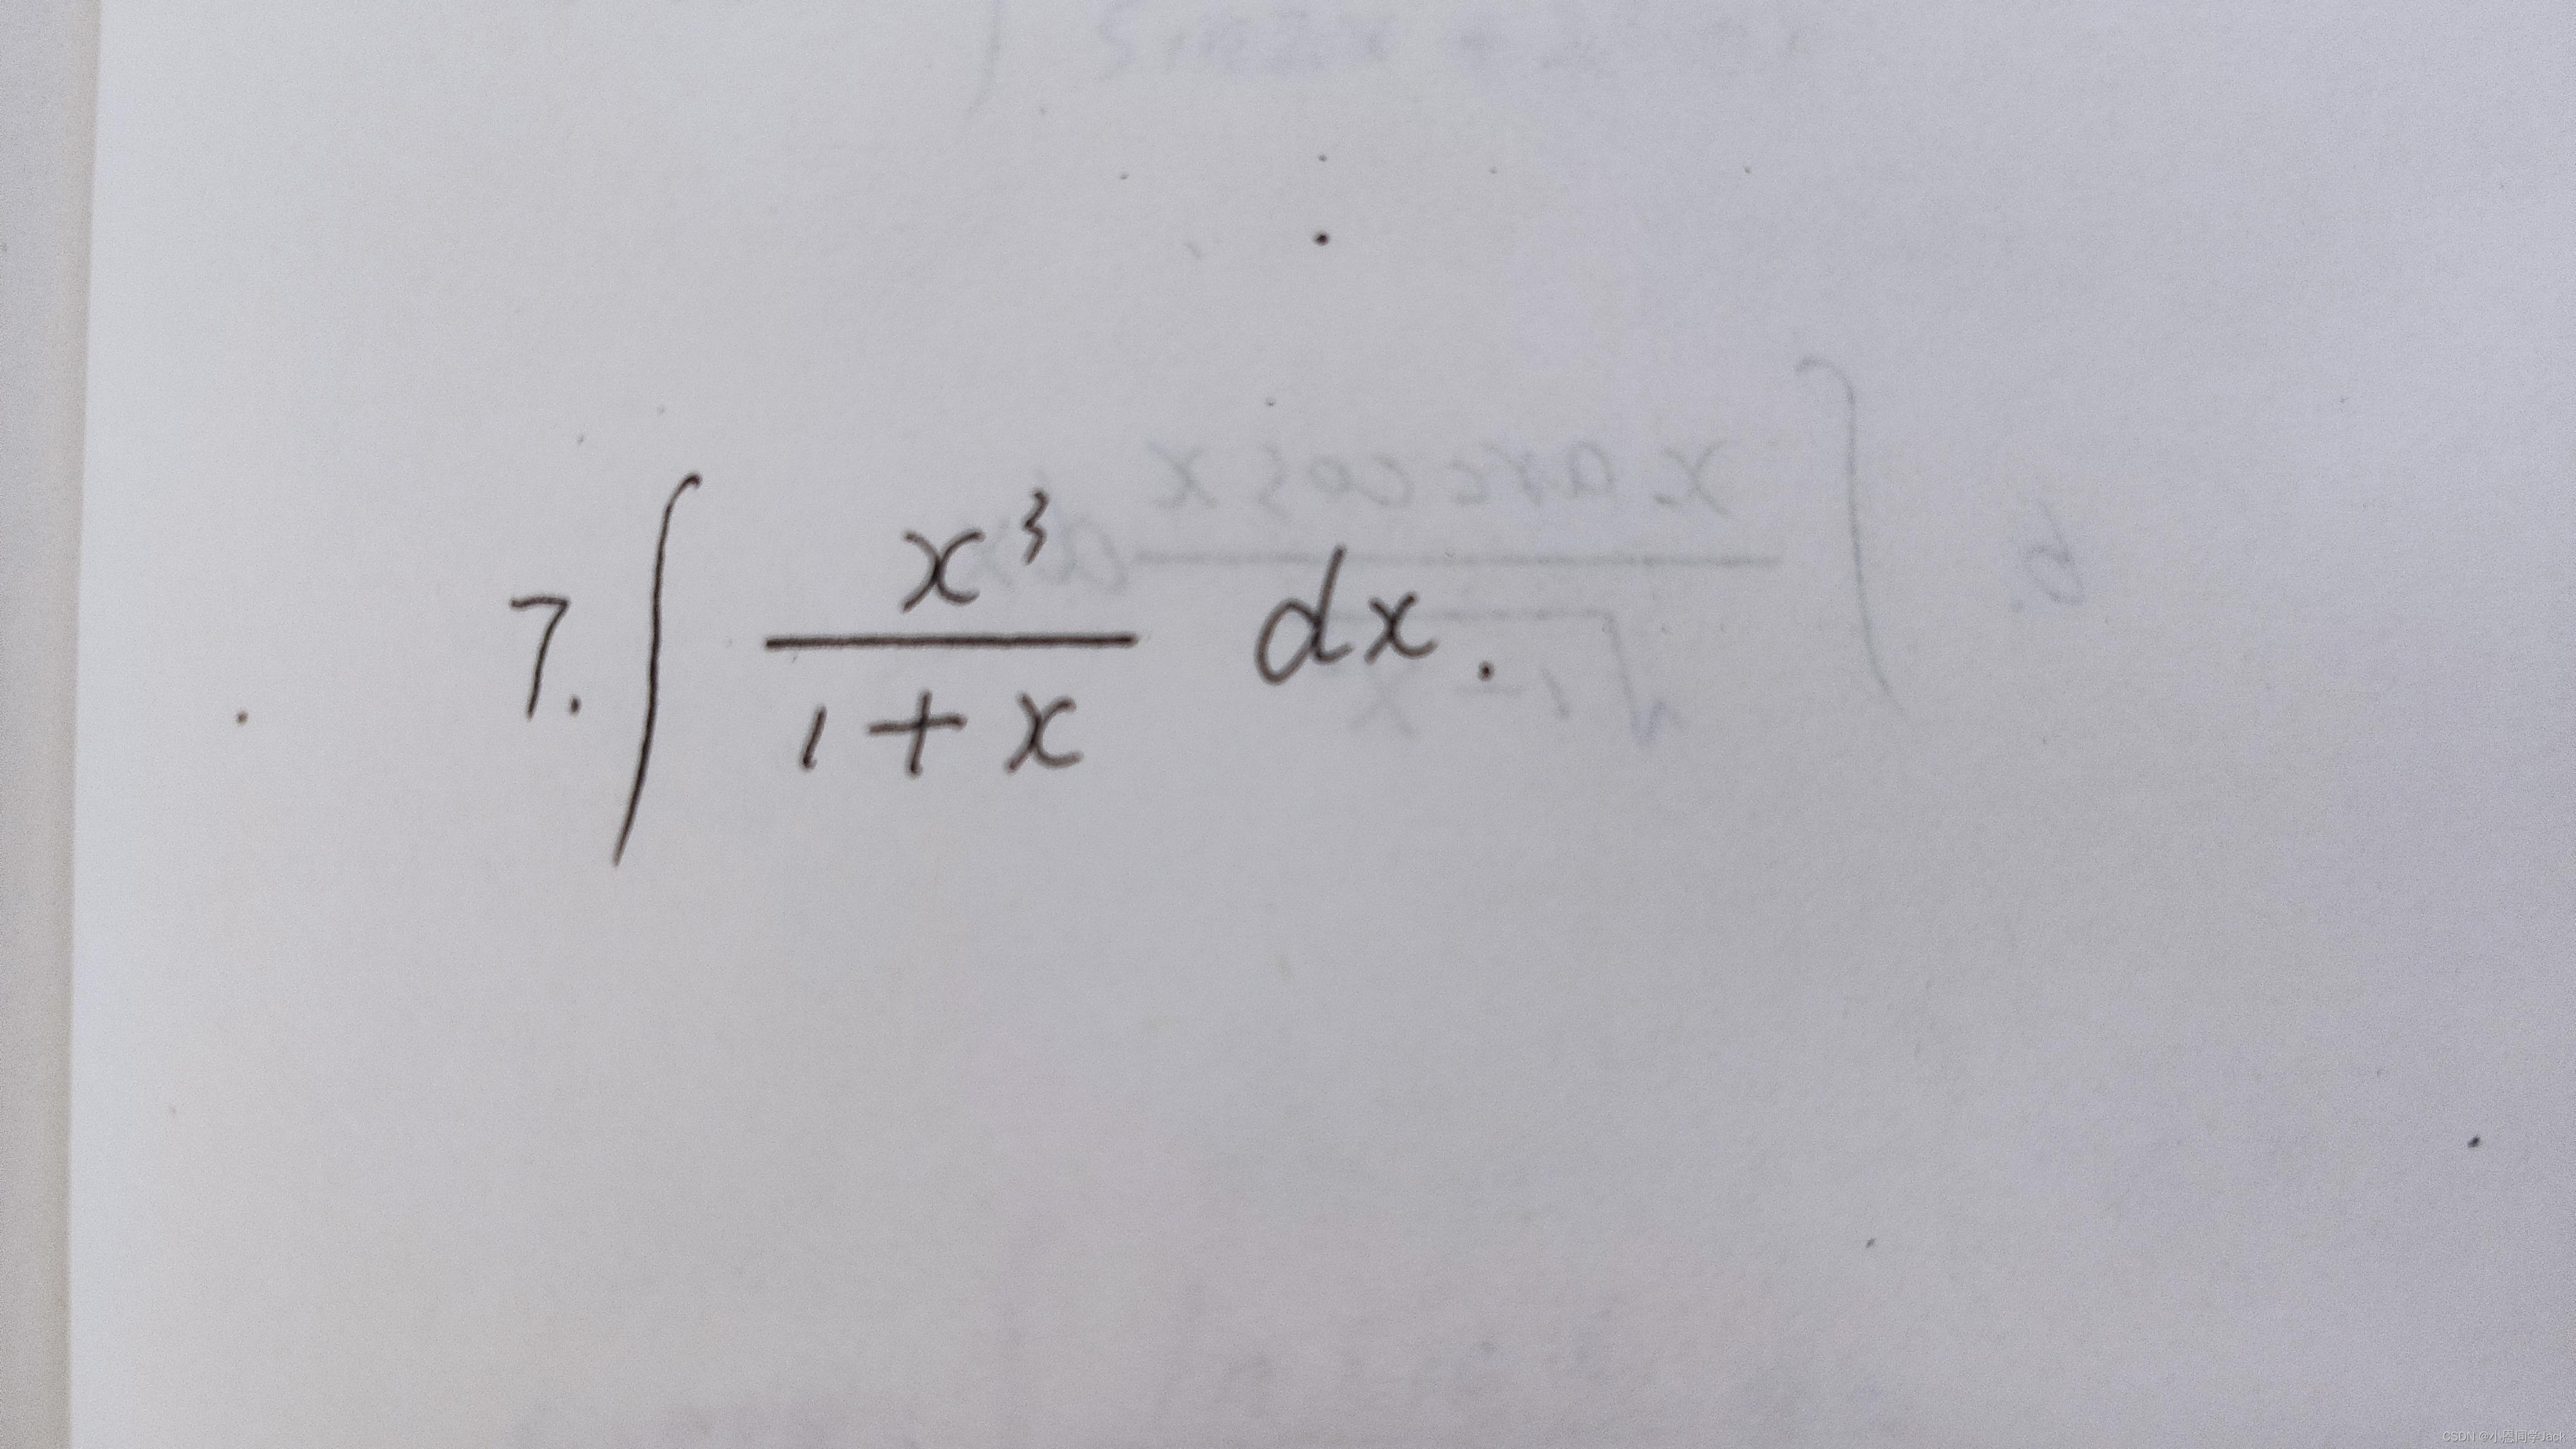 7. ∫ x³/(1+x) dx.
CSDN @小恩同学Jack